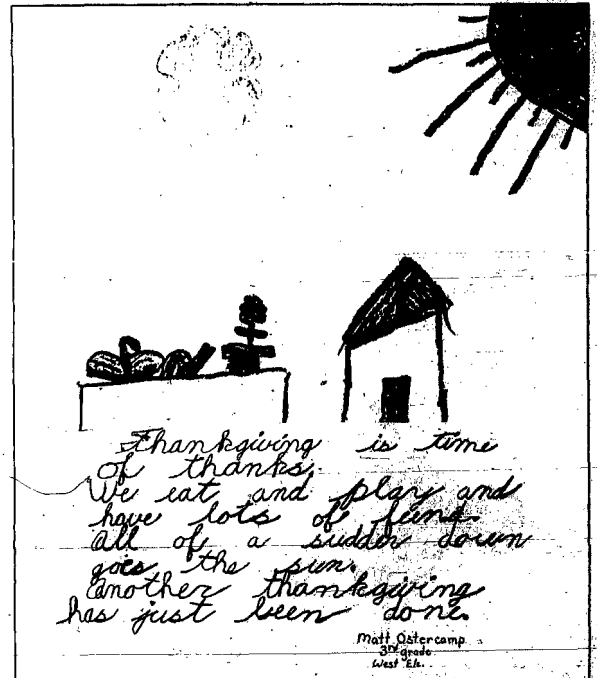 Thankgiving is time
of thanks.
We eat and play and
have lots of fund.
all of a sudder down
goes the sun.
another thankgiving
has just been done.
Matt Ostercamp
3rd grade
West Ele.